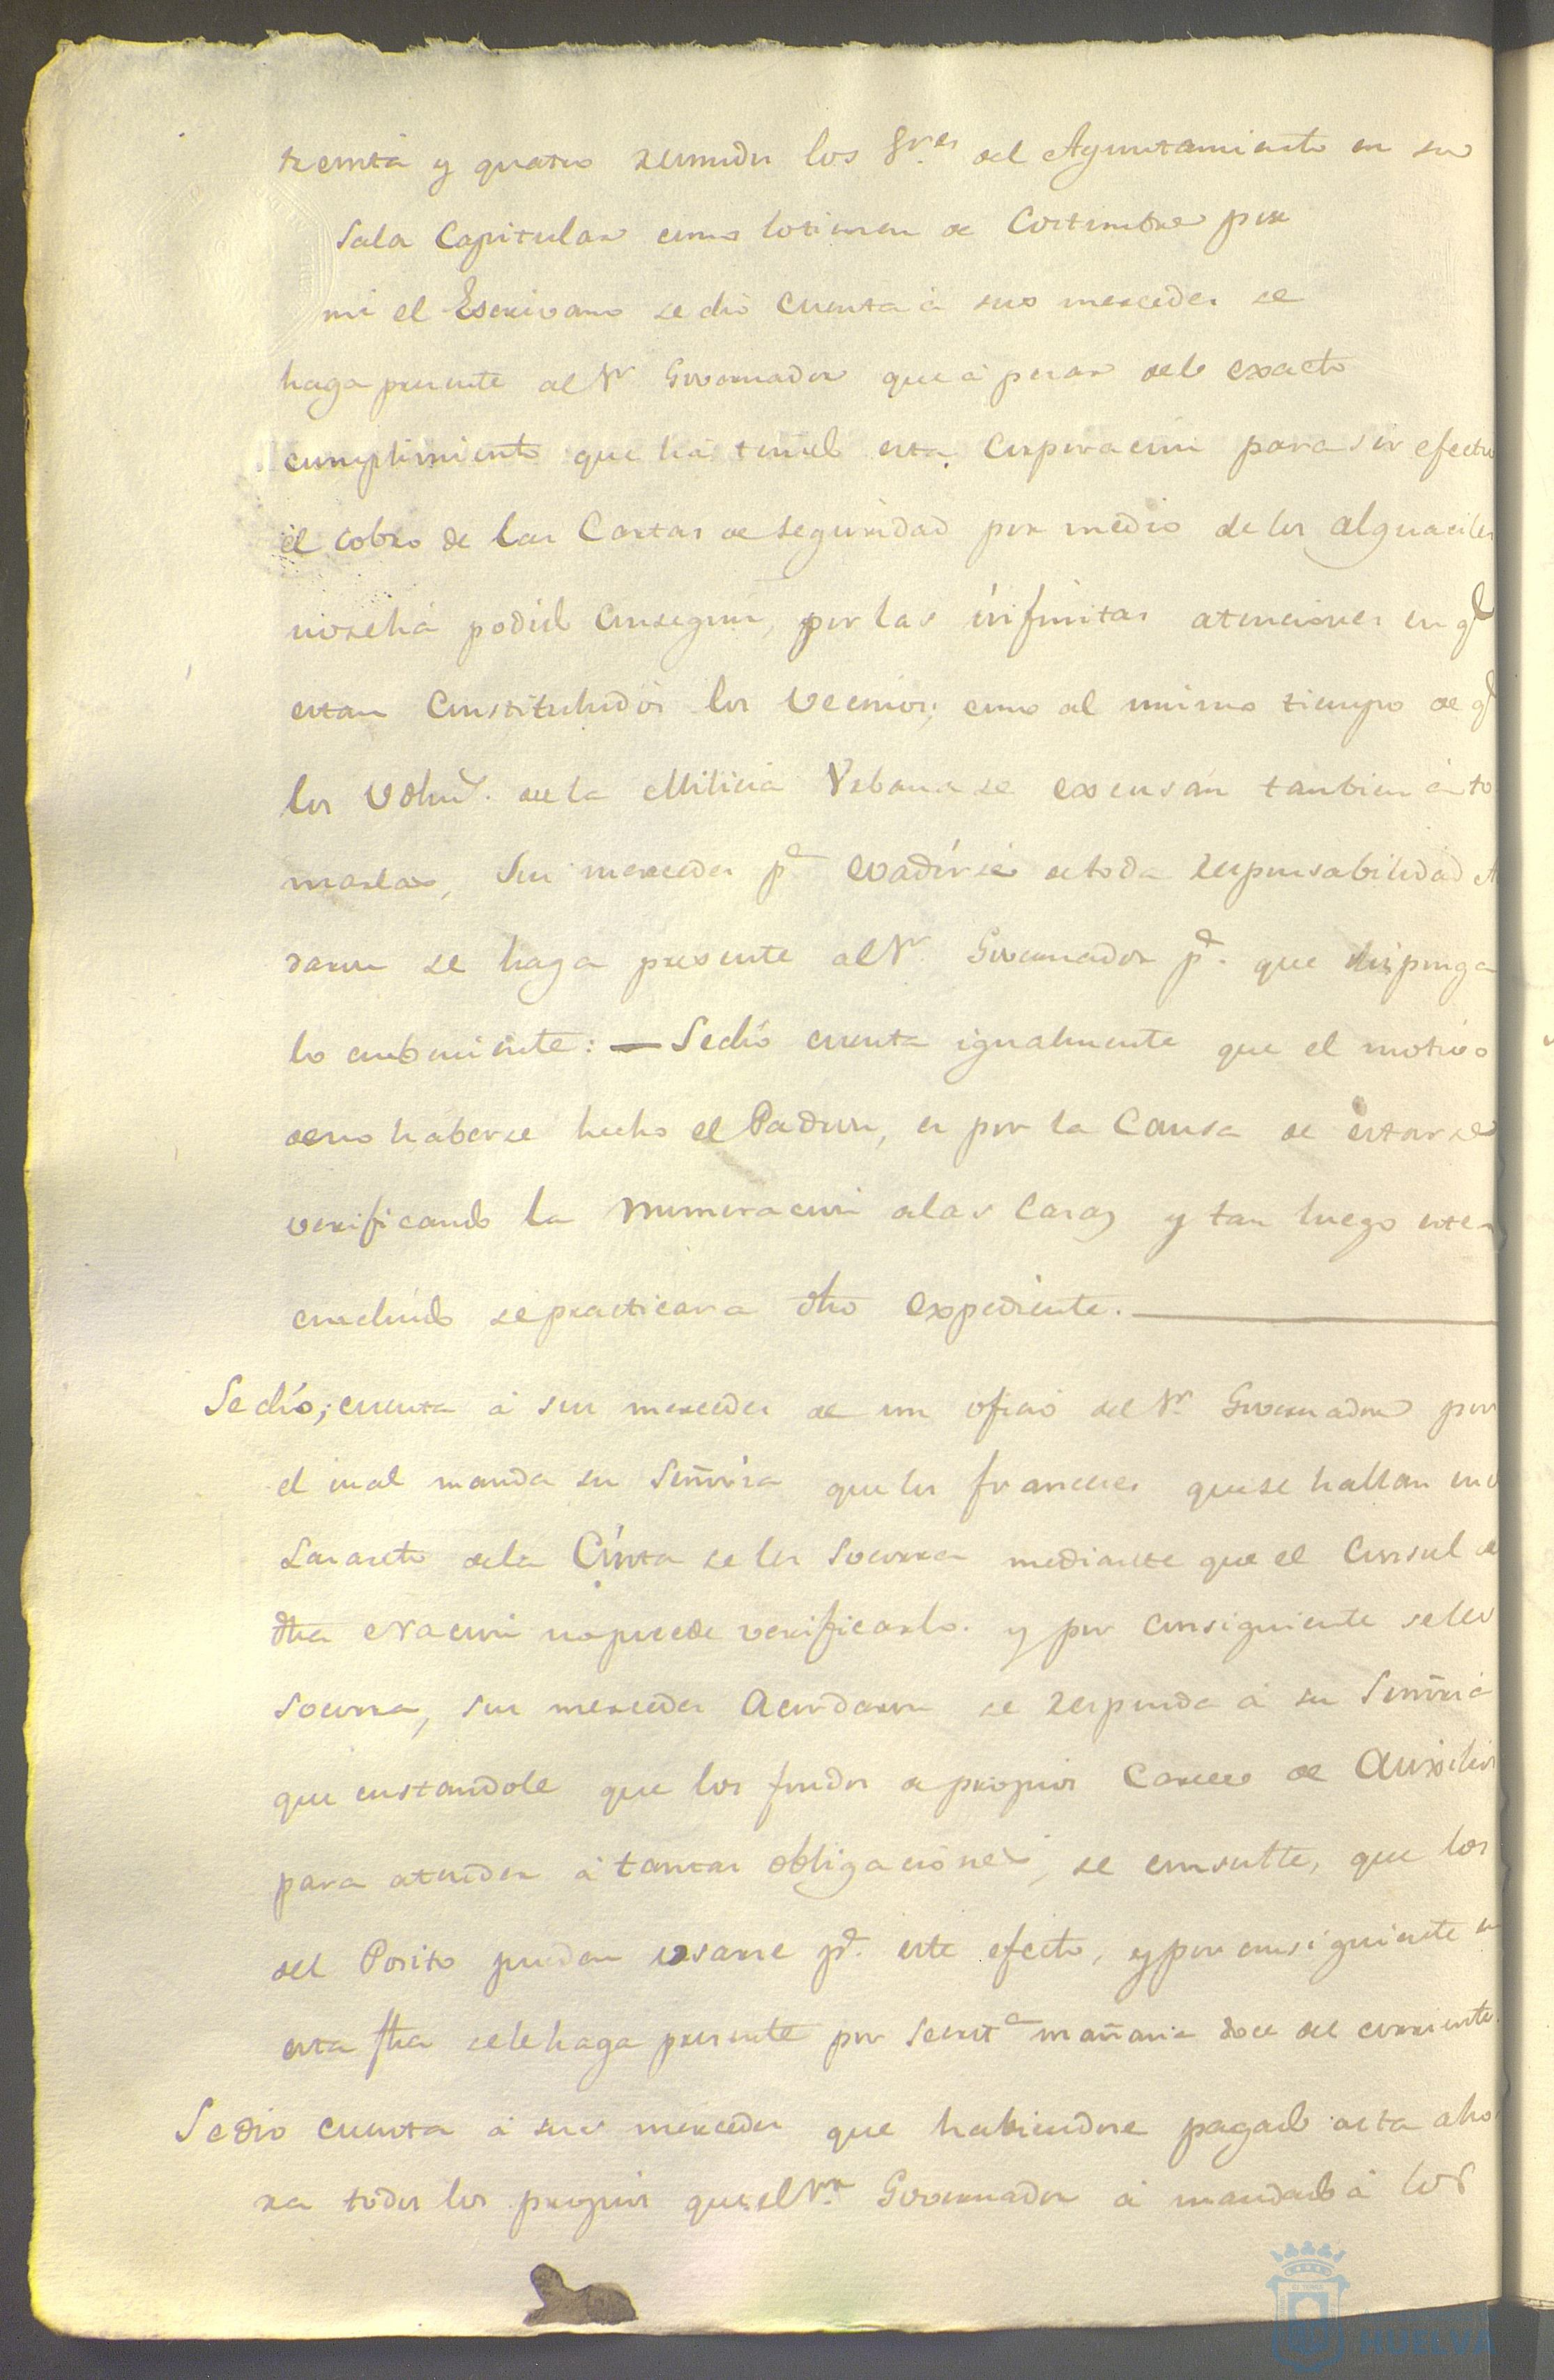 treinta y quatro reunidos los Sres. del Ayuntamiento en su
Sala Capitular como lo tienen de Costumbre por
mi el Escrivano se dio Cuenta á sus mercedes se
haga presente al Sr Governador que á pesar delo exacto
cumplimiento que ha tenido esta Corporacion para ser efectu
el cobro de las Cartas de seguridad por medio de los alguaciles
nosehá podido Conseguir, por las infinitas atenciones en qe
estan Constituhidos los Vecinos; como al mismo tiempo de qe
los de la Milicia Vrbana se excusan tambien á to
marlas, Sus mercedes pa evadirse de toda responsabilidad A
daron se haga presente al Sr. Governador pa. que disponga
lo combeniente: — Sedió cuenta igualmente que el motivo
deno haberse hecho el Padron, es por la Causa de estarse
verificando la Numeracion delas Casas y tan luego este
concluido se practicara dho expediente.
Se dió; cuenta á sus mercedes de un oficio del Sr. Governador por
el cual manda su Señoria que los franceses que se hallan en
Lazareto dela Cinta se les Socorra mediante que el Consul de
dha Nacion nopuede verificarlo. y por consiguiente seles
Socorra, sus mercedes Acordaron se responda á su Señoria
que constandole que los fondos de propios Carece de Auxilios
para atender á tantas obligaciones, se consulte, que los
del Posito puedan usarse pa. este efecto, y por consiguiente en
esta fha sele haga presente por Secreta mañana doce del corriente.
Se dio cuenta á sus mercedes que habiendose pagado asta aho
ra todos los propios que el Sr. Governador á mandado á los
HUELVA